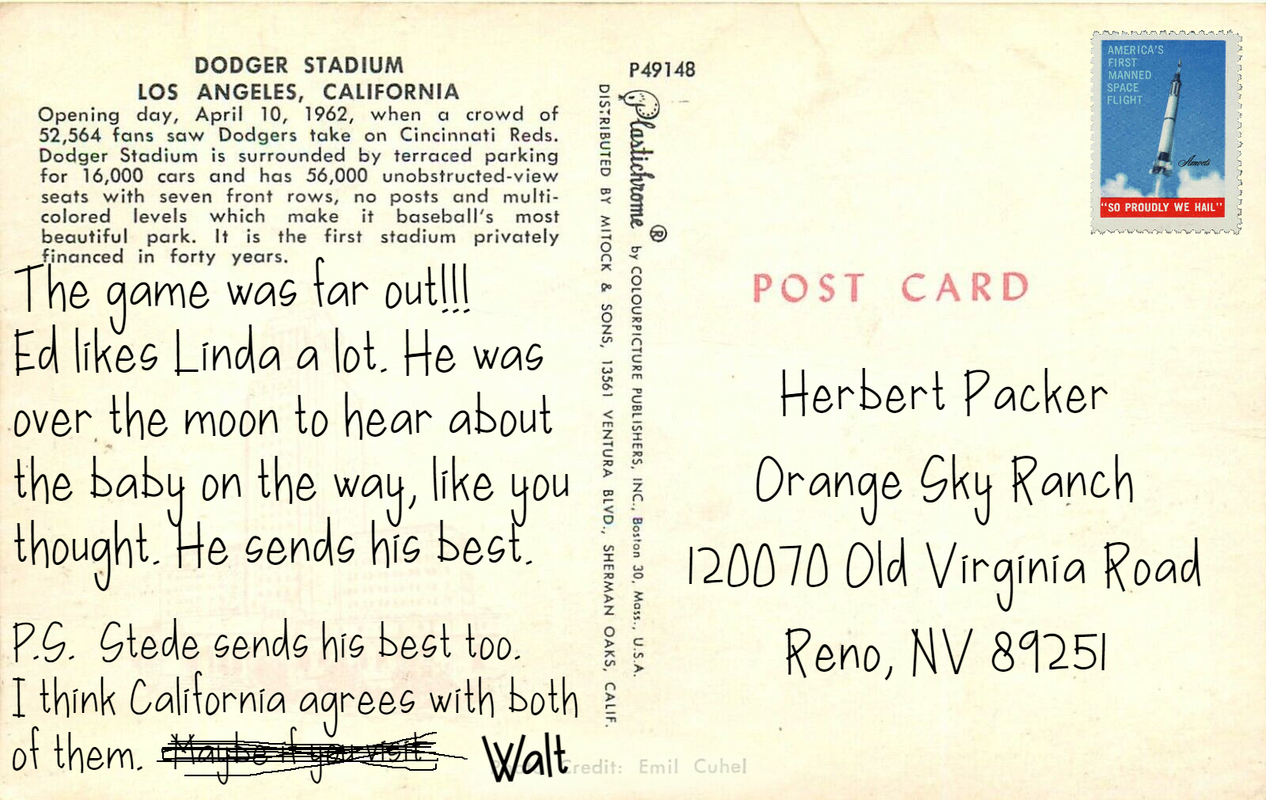 DODGER STADIUM
LOS ANGELES, CALIFORNIA
Opening day, April 10, 1962, when a crowd of
52,564 fans saw Dodgers take on Cincinnati Reds.
Dodger Stadium is surrounded by terraced parking
for 16,000 cars and has 56,000 unobstructed-view
seats with seven front rows, no posts and multi-
colored levels which make it baseball's most
beautiful park. It is the first stadium privately
financed in forty years.
The game was far out!!!
Ed likes Linda a lot. He was
over the moon to hear about
the baby on the way, like you
thought. He sends his best.
P.S. Stede sends his best too.
I think California agrees with both
of them. Maybe if you visit
Walt
Credit: Emil Cuhel
P49148
Plastichrome ® by COLOURPICTURE PUBLISHERS, INC., Boston 30, Mass., U.S.A.
DISTRIBUTED BY MITOCK & SONS, 13561 VENTURA BLVD., SHERMAN OAKS, CALIF.
AMERICA'S
FIRST
MANNED
SPACE
FLIGHT
"SO PROUDLY WE HAIL"
POST CARD
Herbert Packer
Orange Sky Ranch
120070 Old Virginia Road
Reno, NV 89251